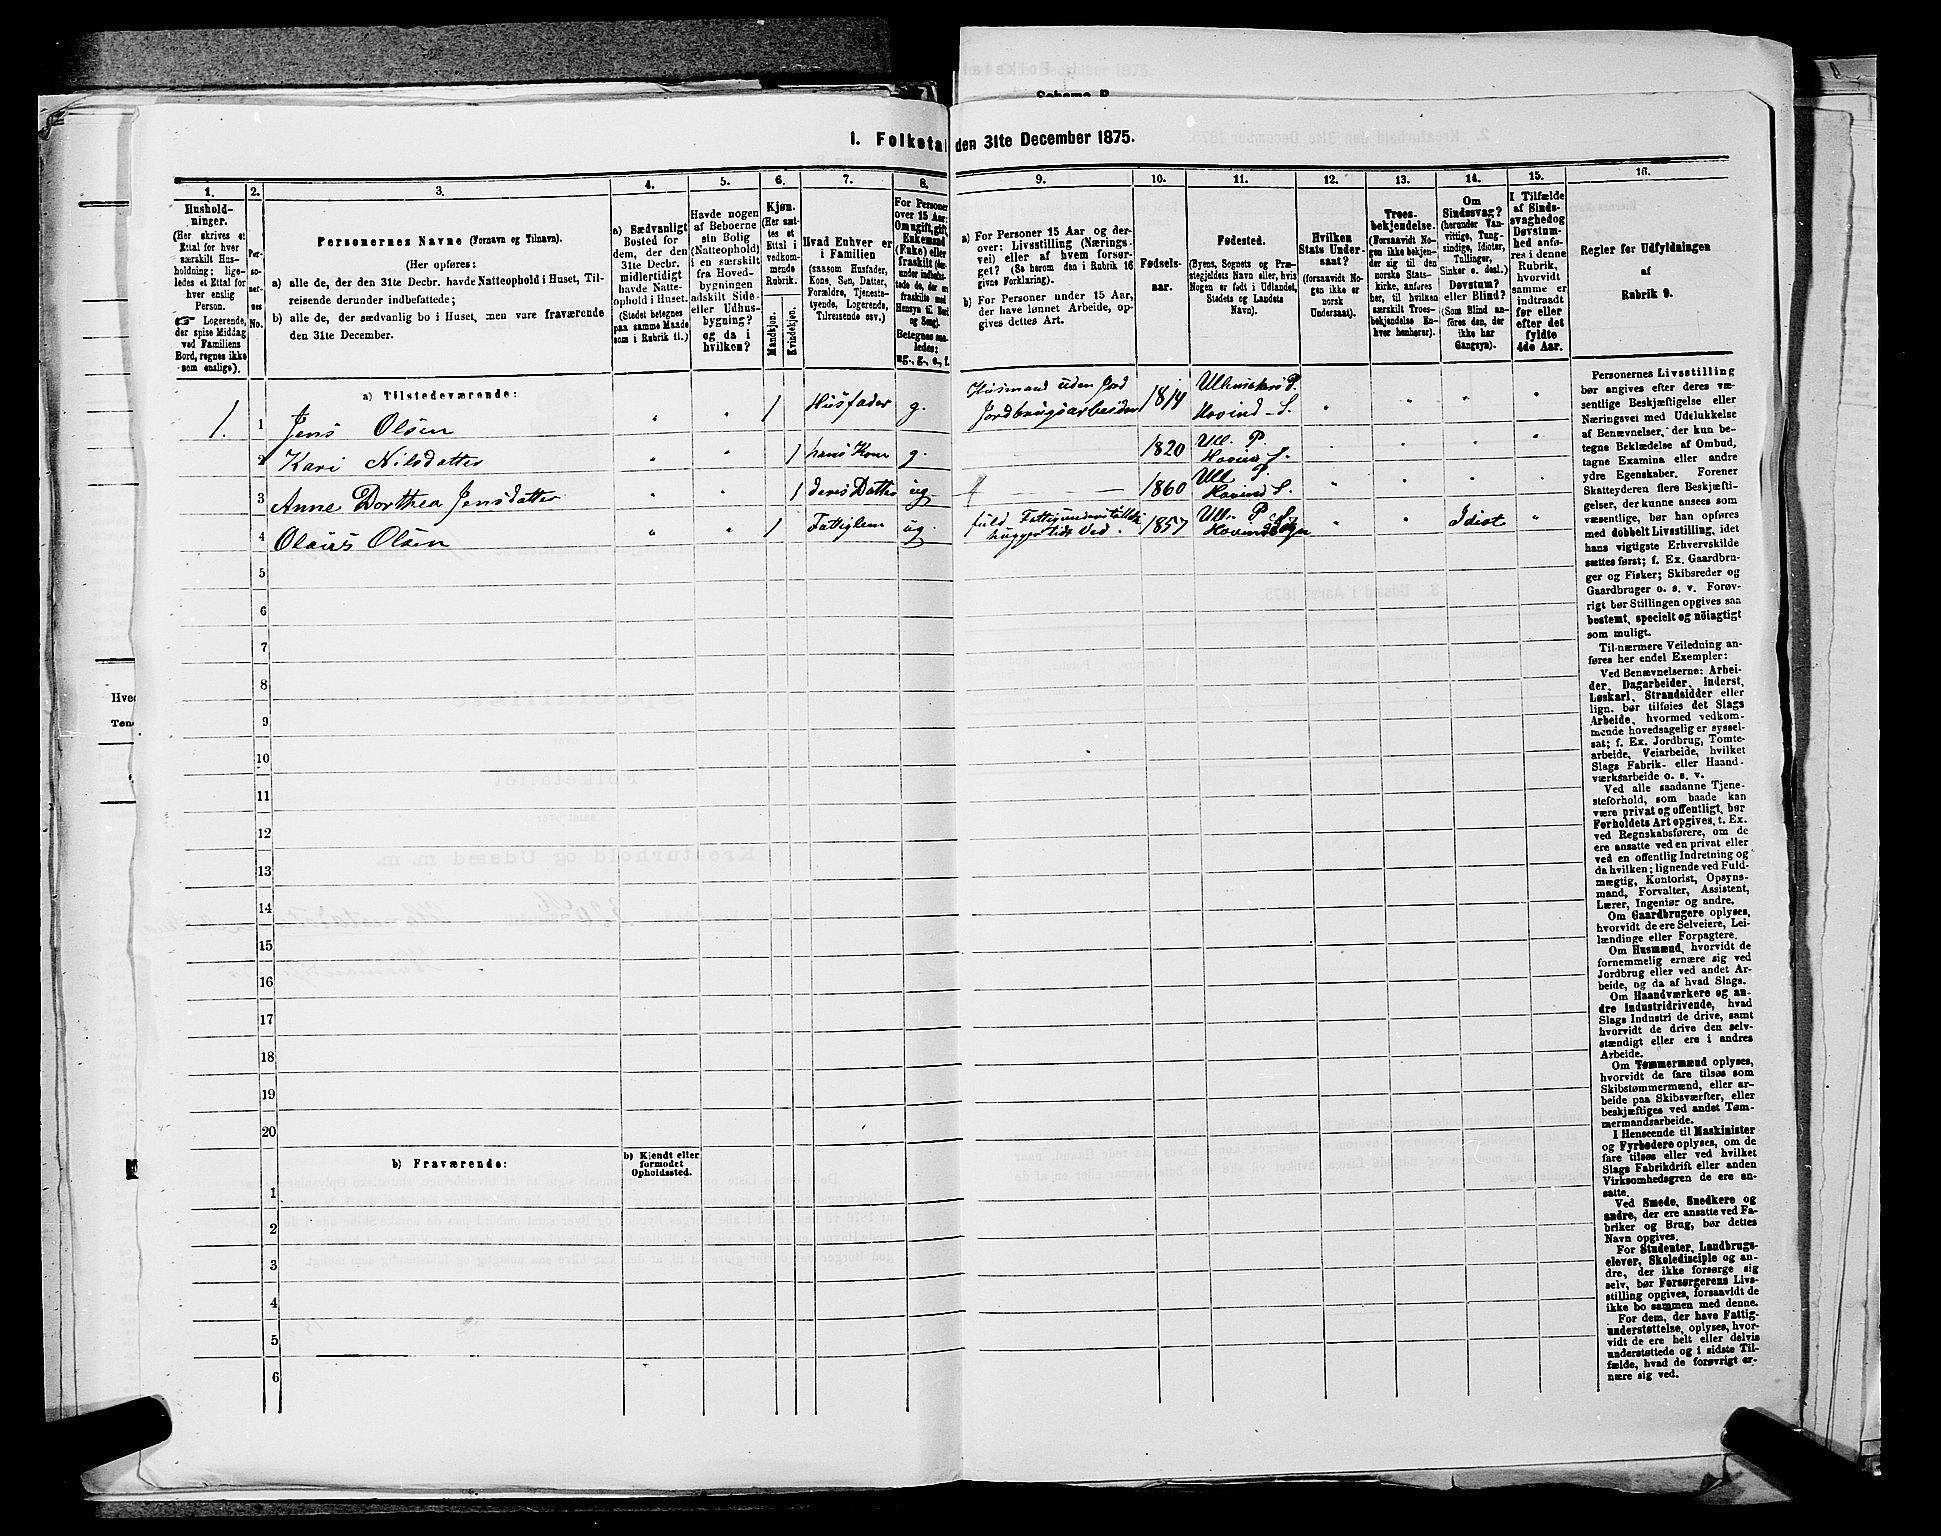 Schema B
I. Folketal den 31te December 1875.
1.
2.
3.
4.
5.
6.
7.
8.
9.
10.
11.
12.
13.
14.
15.
16.
Hushold-
ninger.
(Her skrives et
Ettal for hver
særskilt Hus-
holdning; lige-
ledes et Ettal for
hver enslig
Person.
☞ Logerende,
der spise Middag
ved Familiens
Bord, regnes ikke
som enslige).
Per-
so-
ner-
nes
No.
Personernes Navne (Fornavn og Tilnavn).
(Her opføres:
a) alle de, der den 31te Decbr. havde Natteophold i Huset, Til-
reisende derunder indbefattede;
b) alle de, der sædvanlig bo i Huset, men vare fraværende
den 31te December.
a) Sædvanligt
Bosted for
dem, der den
31te Decbr.
midlertidigt
havde Natte-
ophold i Huset.
(Stedet betegnes
paa samme Maade
som i Rubrik 11.)
Havde nogen
af Beboerne
sin Bolig
(Natteophold)
i en særskilt
fra Hoved-
bygningen
adskilt Side-
eller Udhus-
bygning?
og da i
hvilken?
Kjøn.
(Her sæt-
tes et
Ettal i
vedkom-
mende
Rubrik.
Mandkjøn.
Kvindekjøn.
Hvad Enhver er
i Familien
(saasom Husfader,
Kone, Søn, Datter,
Forældre, Tjeneste-
tyende, Logerende,
Tilreisende osv.)
For Personer
over 15 Aar:
Om ugift, gift,
Enkemand
(Enke) eller
fraskilt (der-
under indbefat-
tede de, der ere
fraskilte med
Hensyn til Bord
og Seng).
Betegnes saa-
ledes:
ug., g., e., f.
a) For Personer 15 Aar og der-
over: Livsstilling (Nærings-
vei) eller af hvem forsør-
get? (Se herom den i Rubrik 16
givne Forklaring).
b) For Personer under 15 Aar,
der have lønnet Arbeide, op-
gives dettes Art.
Fødsels-
aar.
Fødested.
(Byens, Sognets og Præ-
stegjeldets Navn eller, hvis
Nogen er født i Udlandet,
Stedets og Landets
Navn).
Hvilken
Stats Under-
saat?
(forsaavidt No-
gen ikke er
norsk
Undersaat).
Troes-
bekjendelse.
(Forsaavidt No-
gen ikke bekjen-
der sig til den
norske Stats-
kirke, anføres
her, til hvilken
særskilt Troes-
bekjendelse En-
hver henhører).
Om
Sindssvag?
(herunder Van-
vittige, Tung-
sindige, Idioter,
Tullinger,
Sinker o. desl.)
Døvstum?
eller Blind?
(Som Blind an-
føres den, der
ikke har
Gangsyn).
I Tilfælde
af Sinds-
svaghed og
Døvstum-
hed anfø-
res i denne
Rubrik,
hvorvidt
samme er
indtraadt
før eller
efter det
fyldte
4de Aar.
Regler for Udfyldningen
af
Rubrik 9.
a) Tilstedeværende:
1. 1 Jens Olsen " " 1 Husfader g. Husmand uden Jord Jordbrugsarbeider 1814 Ullensakers P. Hovind S. " " " "
2 Kari Nilsdatter " " 1 hans Kone g. 1820 Ull. P. Hovind S. " " " "
3 Anne Dorthea Jensdatter " " 1 deres Datter ug 1860 Ull P. Hovind S. " " " "
4 Olaus Olsen " " 1 Fattiglem ug. fuld Fattigunderstøttelse hugger tids Ved. 1857 Ull. P. " " Idiot "
5
6
7
8
9
10
11
12
13
14
15
16
17
18
19
20
b) Fraværende:
b) Kjendt eller
formodet
Opholdssted.
1
2
3
4
5
6
Personernes Livsstilling
bør angives efter deres væ-
sentlige Beskjæftigelse eller
Næringsvei med Udelukkelse
af Benævnelser, der kun be-
tegne Beklædelse af Ombud,
tagne Examina eller andre
ydre Egenskaber. Forener
Skatteyderen flere Beskjæfti-
gelser, der kunne ansees som
væsentlige, bør han opføres
med dobbelt Livsstilling, idet
hans vigtigste Erhvervskilde
sættes først; f. Ex. Gaardbru-
ger og Fisker; Skibsreder og
Gaardbruger o. s. v. Forøv-
rigt bør Stillingen opgives saa
bestemt, specielt og nöiagtigt
som muligt.
Til nærmere Veiledning an-
føres her endel Exempler:
Ved Benævnelserne: Arbei-
der, Dagarbeider, Inderst,
Løskarl, Strandsidder eller
lign. bør tilføies det Slags
Arbeide, hvormed vedkom-
mende hovedsagelig er syssel-
sat; f. Ex. Jordbrug, Tomte-
arbeide, Veiarbeide, hvilket
Slags Fabrik- eller Haand-
værksarbeide o. s. v.
Ved alle saadanne Tjene-
steforhold, som baade kan
være privat og offentligt, bør
Forholdets Art opgives, t. Ex.
ved Regnskabsførere, om de
ere ansatte ved en privat eller
ved en offentlig Indretning og
da hvilken; lignende ved Fuld-
mægtig, Kontorist, Opsyns-
mand, Forvalter, Assistent,
Lærer, Ingeniør og andre.
Om Gaardbrugere oplyses,
hvorvidt de ere Selveiere, Lei-
lændinge eller Forpagtere.
Om Husmænd, hvorvidt de
fornemmelig ernære sig ved
Jordbrug eller ved andet Ar-
beide, og da af hvad Slags.
Om Haandværkere og an-
dre Industridrivende, hvad
Slags Industri de drive, samt
hvorvidt de drive den selv-
stændigt eller ere i andres
Arbeide.
Om Tømmermænd oplyses,
hvorvidt de fare tilsøs som
Skibstømmermænd, eller ar-
beide paa Skibsværfter, eller
beskjæftiges ved andet Tøm-
mermandsarbeide.
I Henseende til Maskinister
og Fyrbødere oplyses, om de
fare tilsøs eller ved hvilket
Slags Fabrikdrift eller anden
Virksomhedsgren de ere an-
satte.
Ved Smede, Snedkere og
andre, der ere ansatte ved Fa-
briker og Brug, bør dettes
Navn opgives.
For Studenter, Landbrugs-
elever, Skoledisciple og an-
dre, der ikke forsørge sig
selv, bør Forsørgerens Livs-
stilling opgives, forsaavidt de
ikke bo sammen med denne.
For dem, der have Fattig-
understøttelse, oplyses, hvor-
vidt de ere helt eller delvis
understøttede og i sidste Til-
fælde, hvad de forøvrigt er-
nære sig ved.